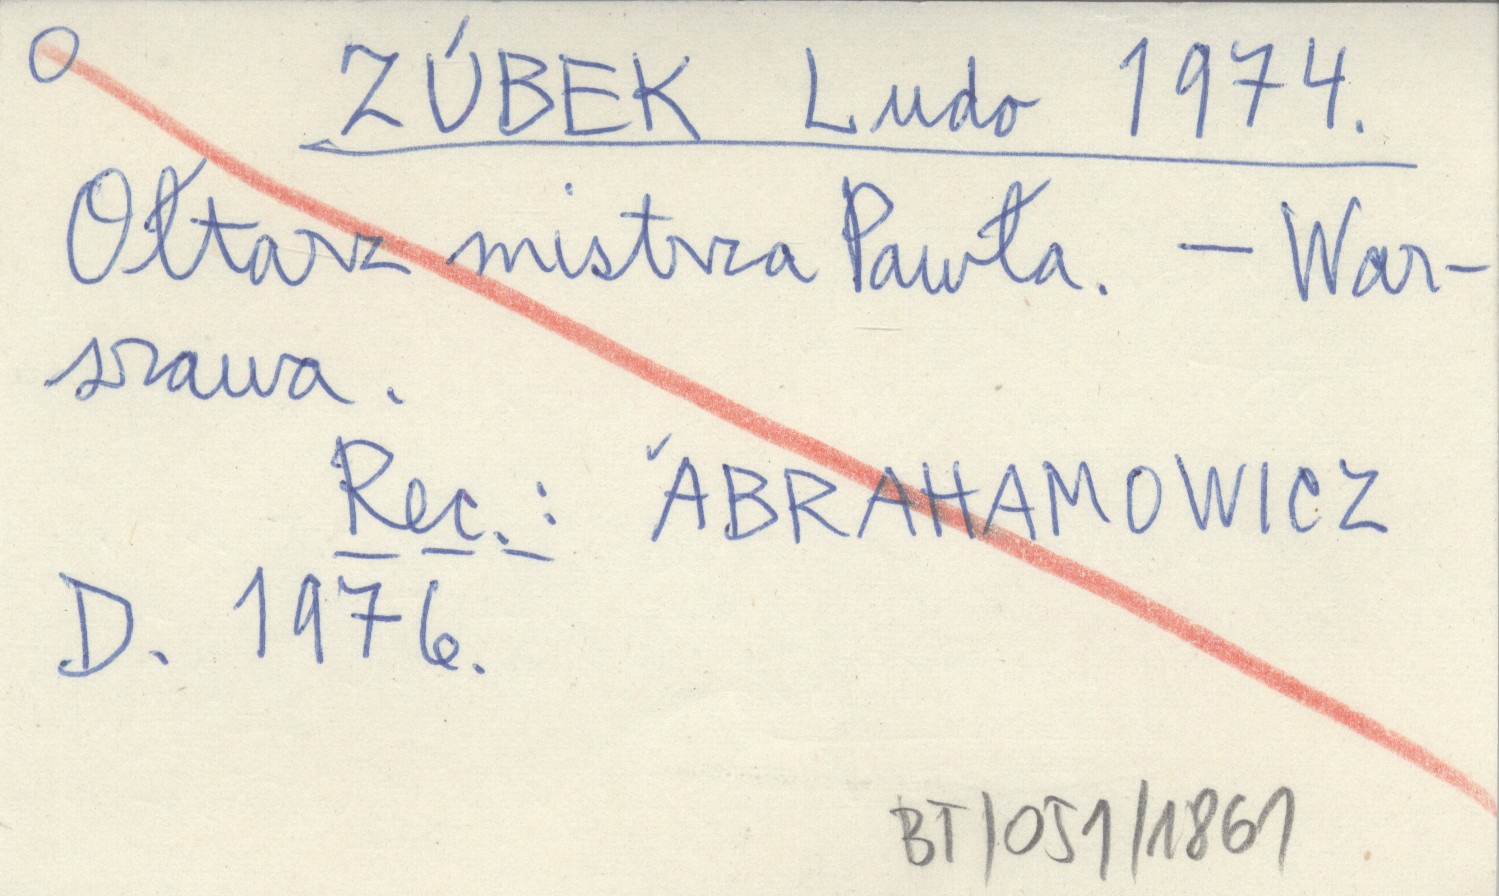 ZÚBEK Ludo 1974.
Ołtarz mistrza Pawła. – War-
szawa.
Rec.: ABRAHAMOWICZ
D. 1976.
BT/051/1861